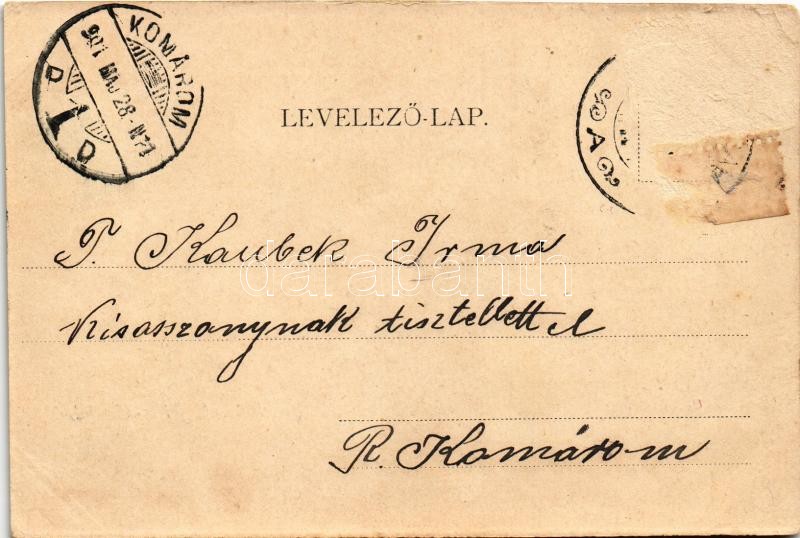 KOMÁROM
901 MAJ 28
LEVELEZŐ-LAP.
A
T. Kaubek Irma
Kisasszonynak tisztelettel
R. Komárom
darabanth